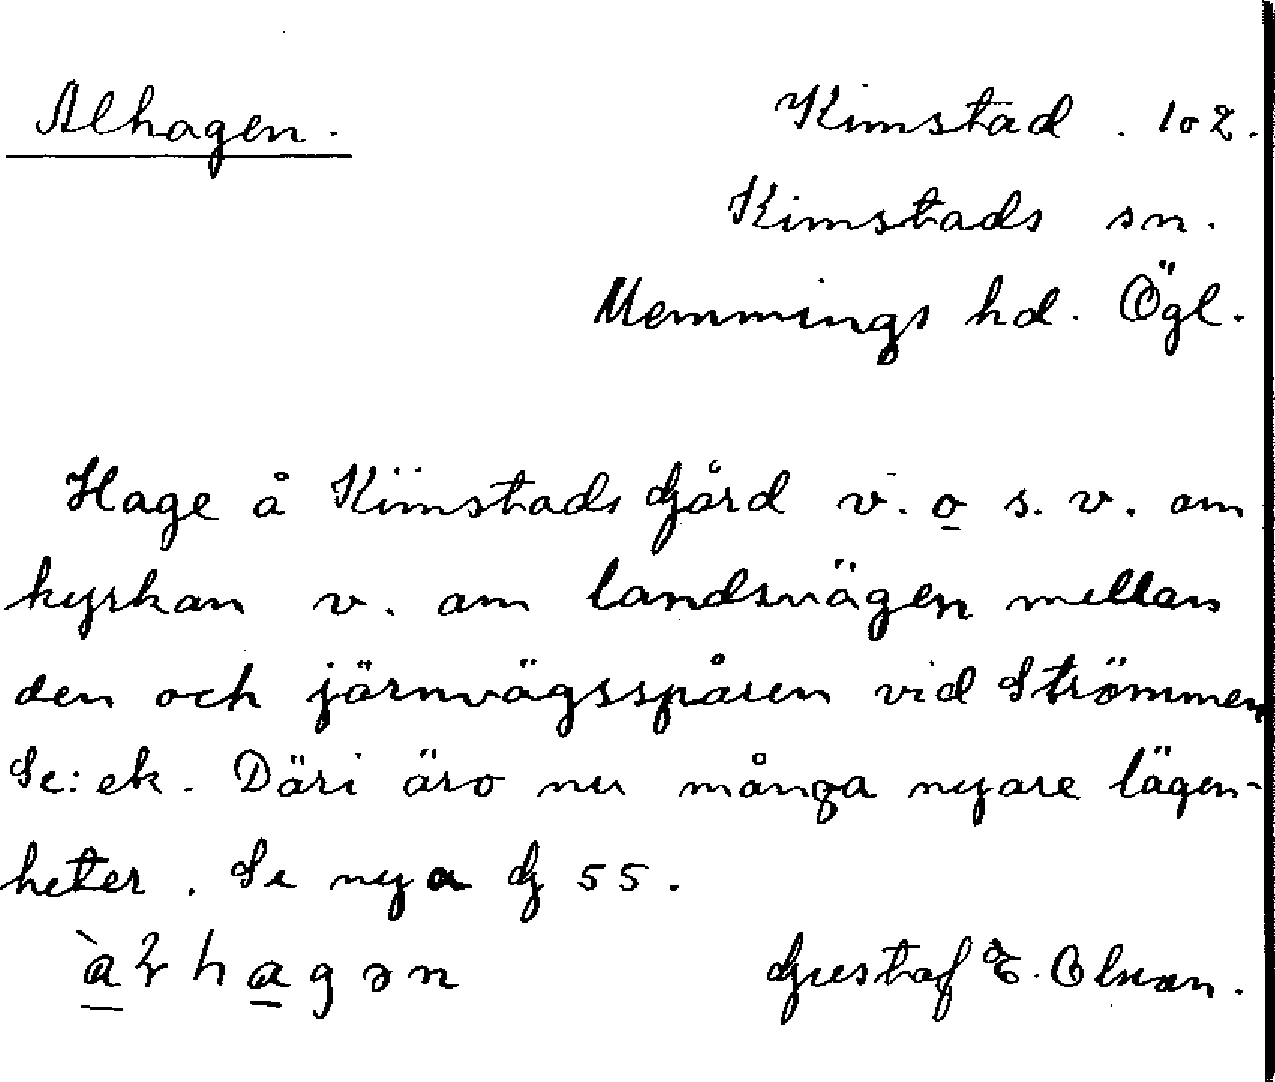 Alhagen.
Kimstad. 102.
Kimstads sn.
Memmings hd. Ögl.
Hage å Kimstads Gård v. o s. v. om
kyrkan v. om landsvägen mellan
den och järnvägsspåren vid Strömmen
Se: ek. Däri äro nu många nyare lägen-
heter. Se nya G 55.
hagən
Gustaf E. Olson.